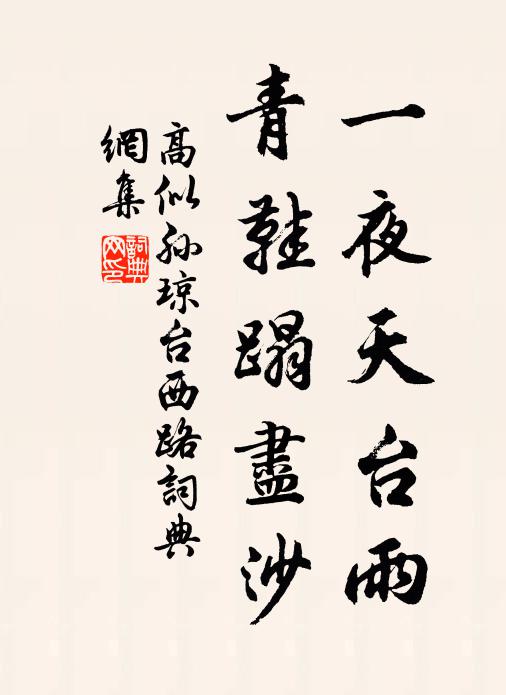 一夜天台雨
青鞋蹋盡沙
高似孙琼台西路詞典
網集
詞典網印